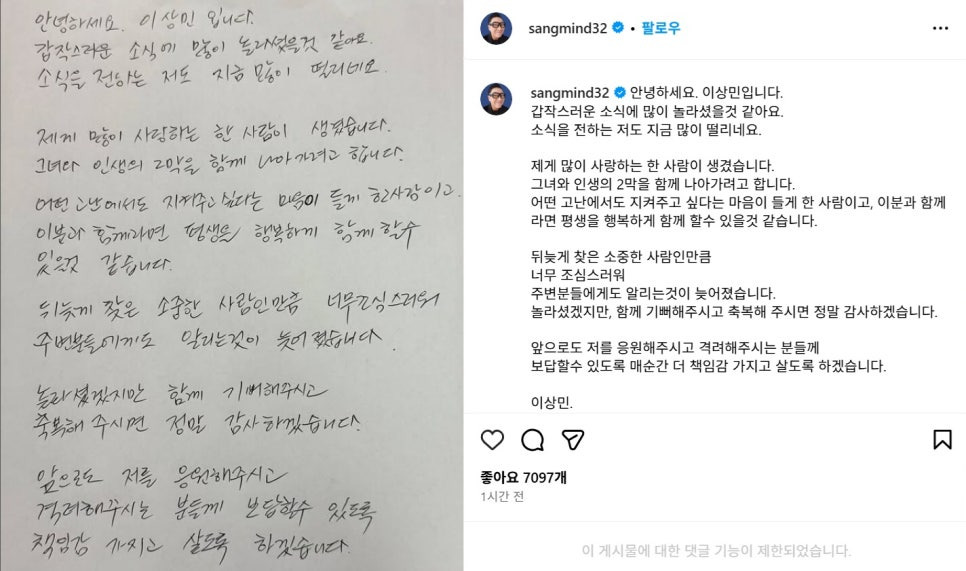 안녕하세요. 이상민 입니다.
갑작스러운 소식에 많이 놀라셨을것 같아요.
소식을 전하는 저도 지금 많이 떨리네요.
제게 많이 사랑하는 한 사람이 생겼습니다.
그녀와 인생의 2막을 함께 나아가려고 합니다.
어떤 고난에서도 지켜주고 싶다는 마음이 들게 한 사람이고.
이분과 함께라면 평생을 행복하게 함께 할수
있을것 같습니다.
뒤늦게 찾은 소중한 사람인만큼 너무 조심스러워
주변분들에게도 알리는것이 늦어졌습니다.
놀라셨겠지만 함께 기뻐해주시고
축복해 주시면 정말 감사하겠습니다.
앞으로도 저를 응원해주시고
격려해주시는 분들께 보답할수 있도록
책임감 가지고 살도록 하겠습니다.
sangmind32 • 팔로우
sangmind32 안녕하세요. 이상민입니다.
갑작스러운 소식에 많이 놀라셨을것 같아요.
소식을 전하는 저도 지금 많이 떨리네요.
제게 많이 사랑하는 한 사람이 생겼습니다.
그녀와 인생의 2막을 함께 나아가려고 합니다.
어떤 고난에서도 지켜주고 싶다는 마음이 들게 한 사람이고, 이분과 함께
라면 평생을 행복하게 함께 할수 있을것 같습니다.
뒤늦게 찾은 소중한 사람인만큼
너무 조심스러워
주변분들에게도 알리는것이 늦어졌습니다.
놀라셨겠지만, 함께 기뻐해주시고 축복해 주시면 정말 감사하겠습니다.
앞으로도 저를 응원해주시고 격려해주시는 분들께
보답할수 있도록 매순간 더 책임감 가지고 살도록 하겠습니다.
이상민.
좋아요 7097개
1시간 전
이 게시물에 대한 댓글 기능이 제한되었습니다.